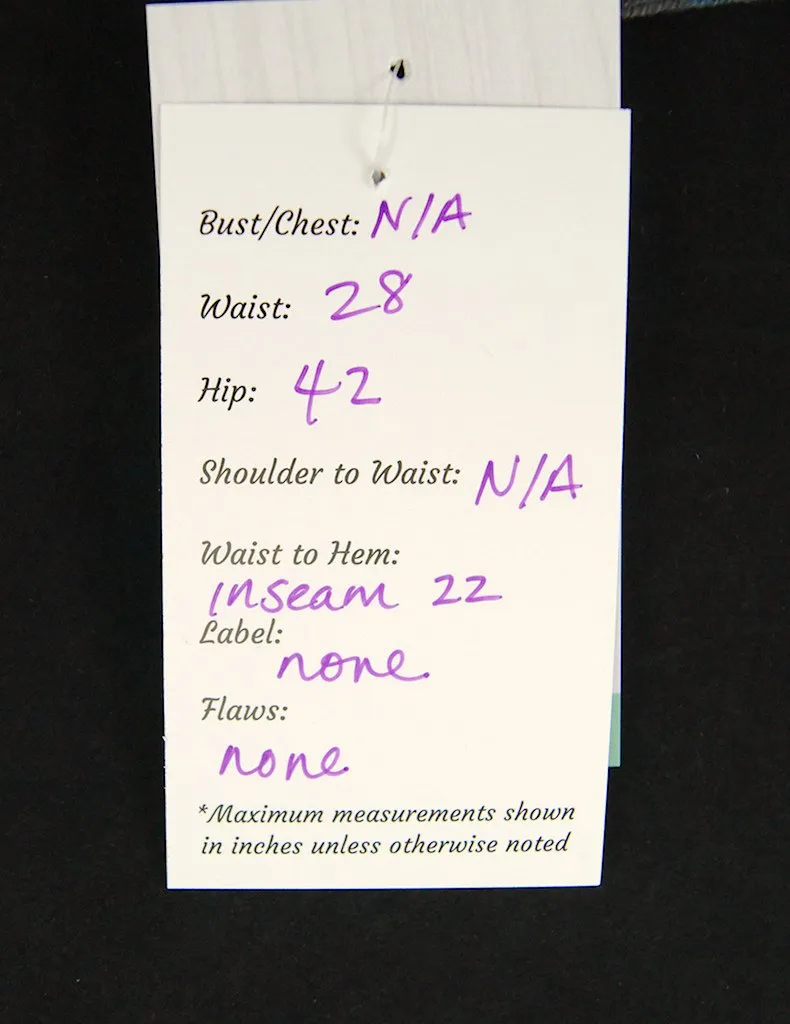 Bust/Chest: N/A
Waist: 28
Hip: 42
Shoulder to Waist: N/A
Waist to Hem:
inseam 22
Label:
none.
Flaws:
none
*Maximum measurements shown
in inches unless otherwise noted